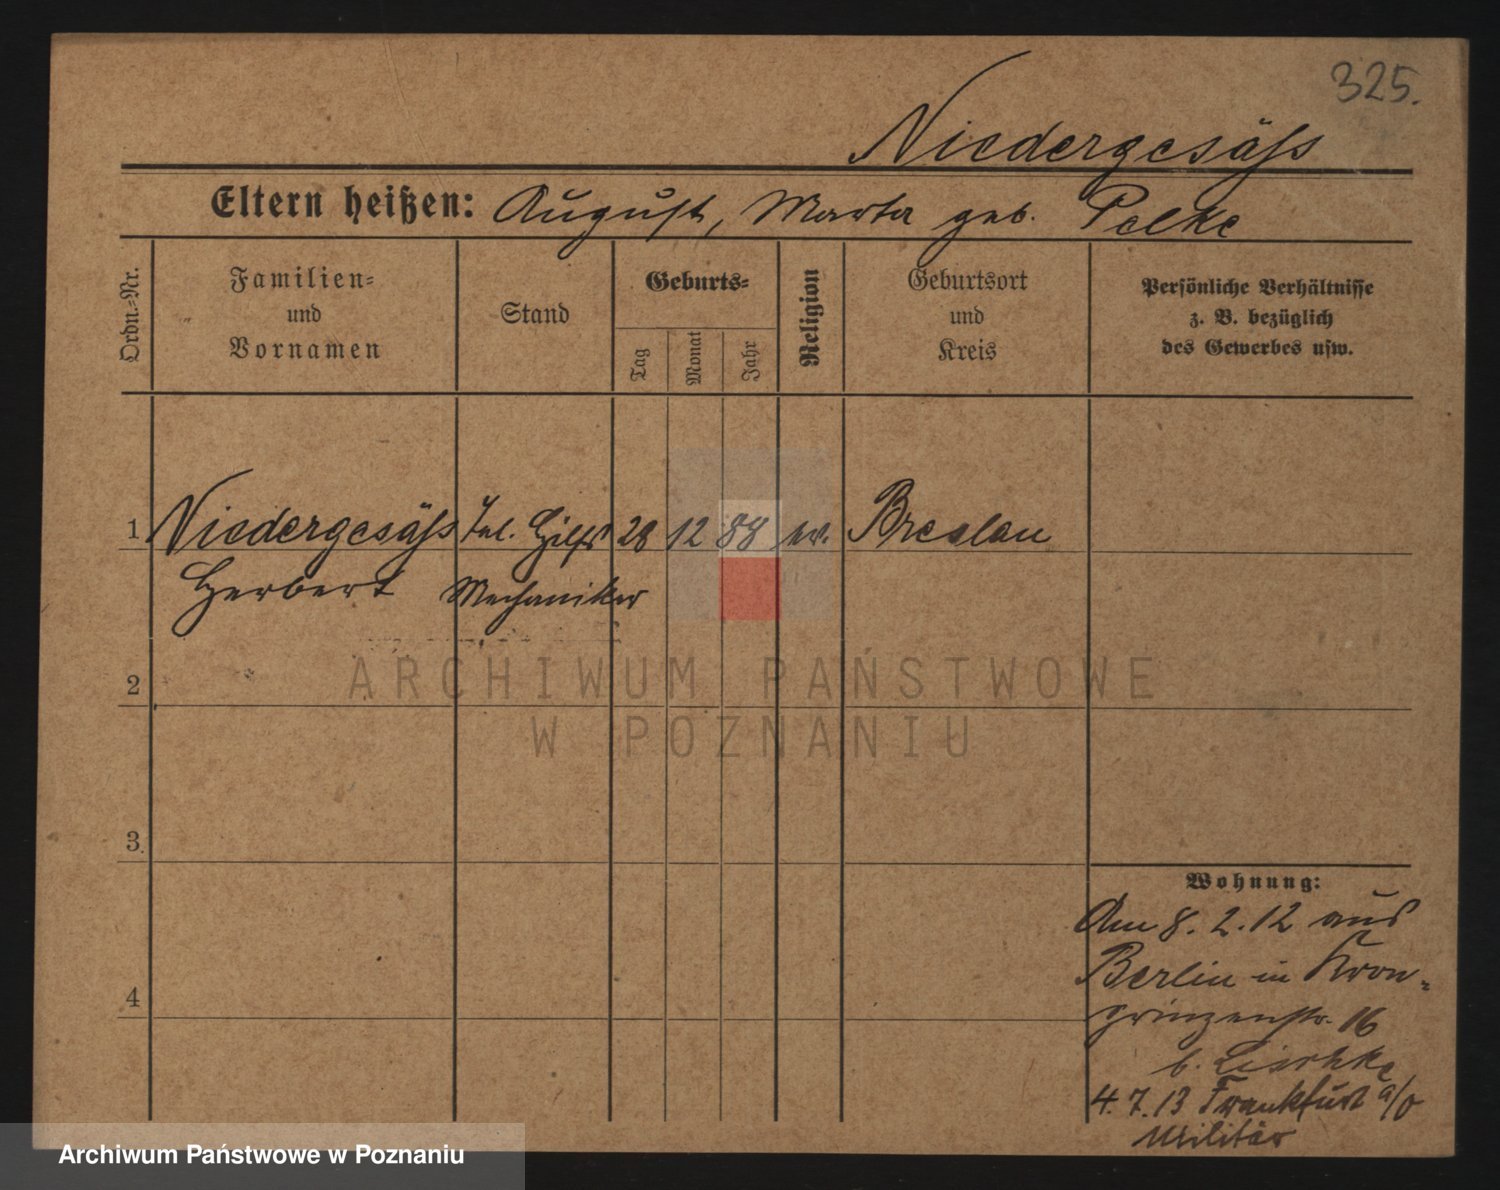 325.
Niedergesäß
Eltern heißen: August, Marta geb. Pelke
Ordn.-Nr.
Familien-
und
Vornamen
Stand
Geburts-
Tag
Monat
Jahr
Religion
Geburtsort
und
Kreis
Persönliche Verhältnisse
z. B. bezüglich
des Gewerbes usw.
1 Niedergesäß Tel. Hilfs 28 12 88 ev. Breslau
Herbert Mechaniker
2
3
4
Wohnung:
Am 8. 2. 12 aus
Berlin in Kron-
prinzenstr. 16
b. Lischke
4. 7. 13 Frankfurt a/o
Militär
ARCHIWUM PAŃSTWOWE
W POZNANIU
Archiwum Państwowe w Poznaniu